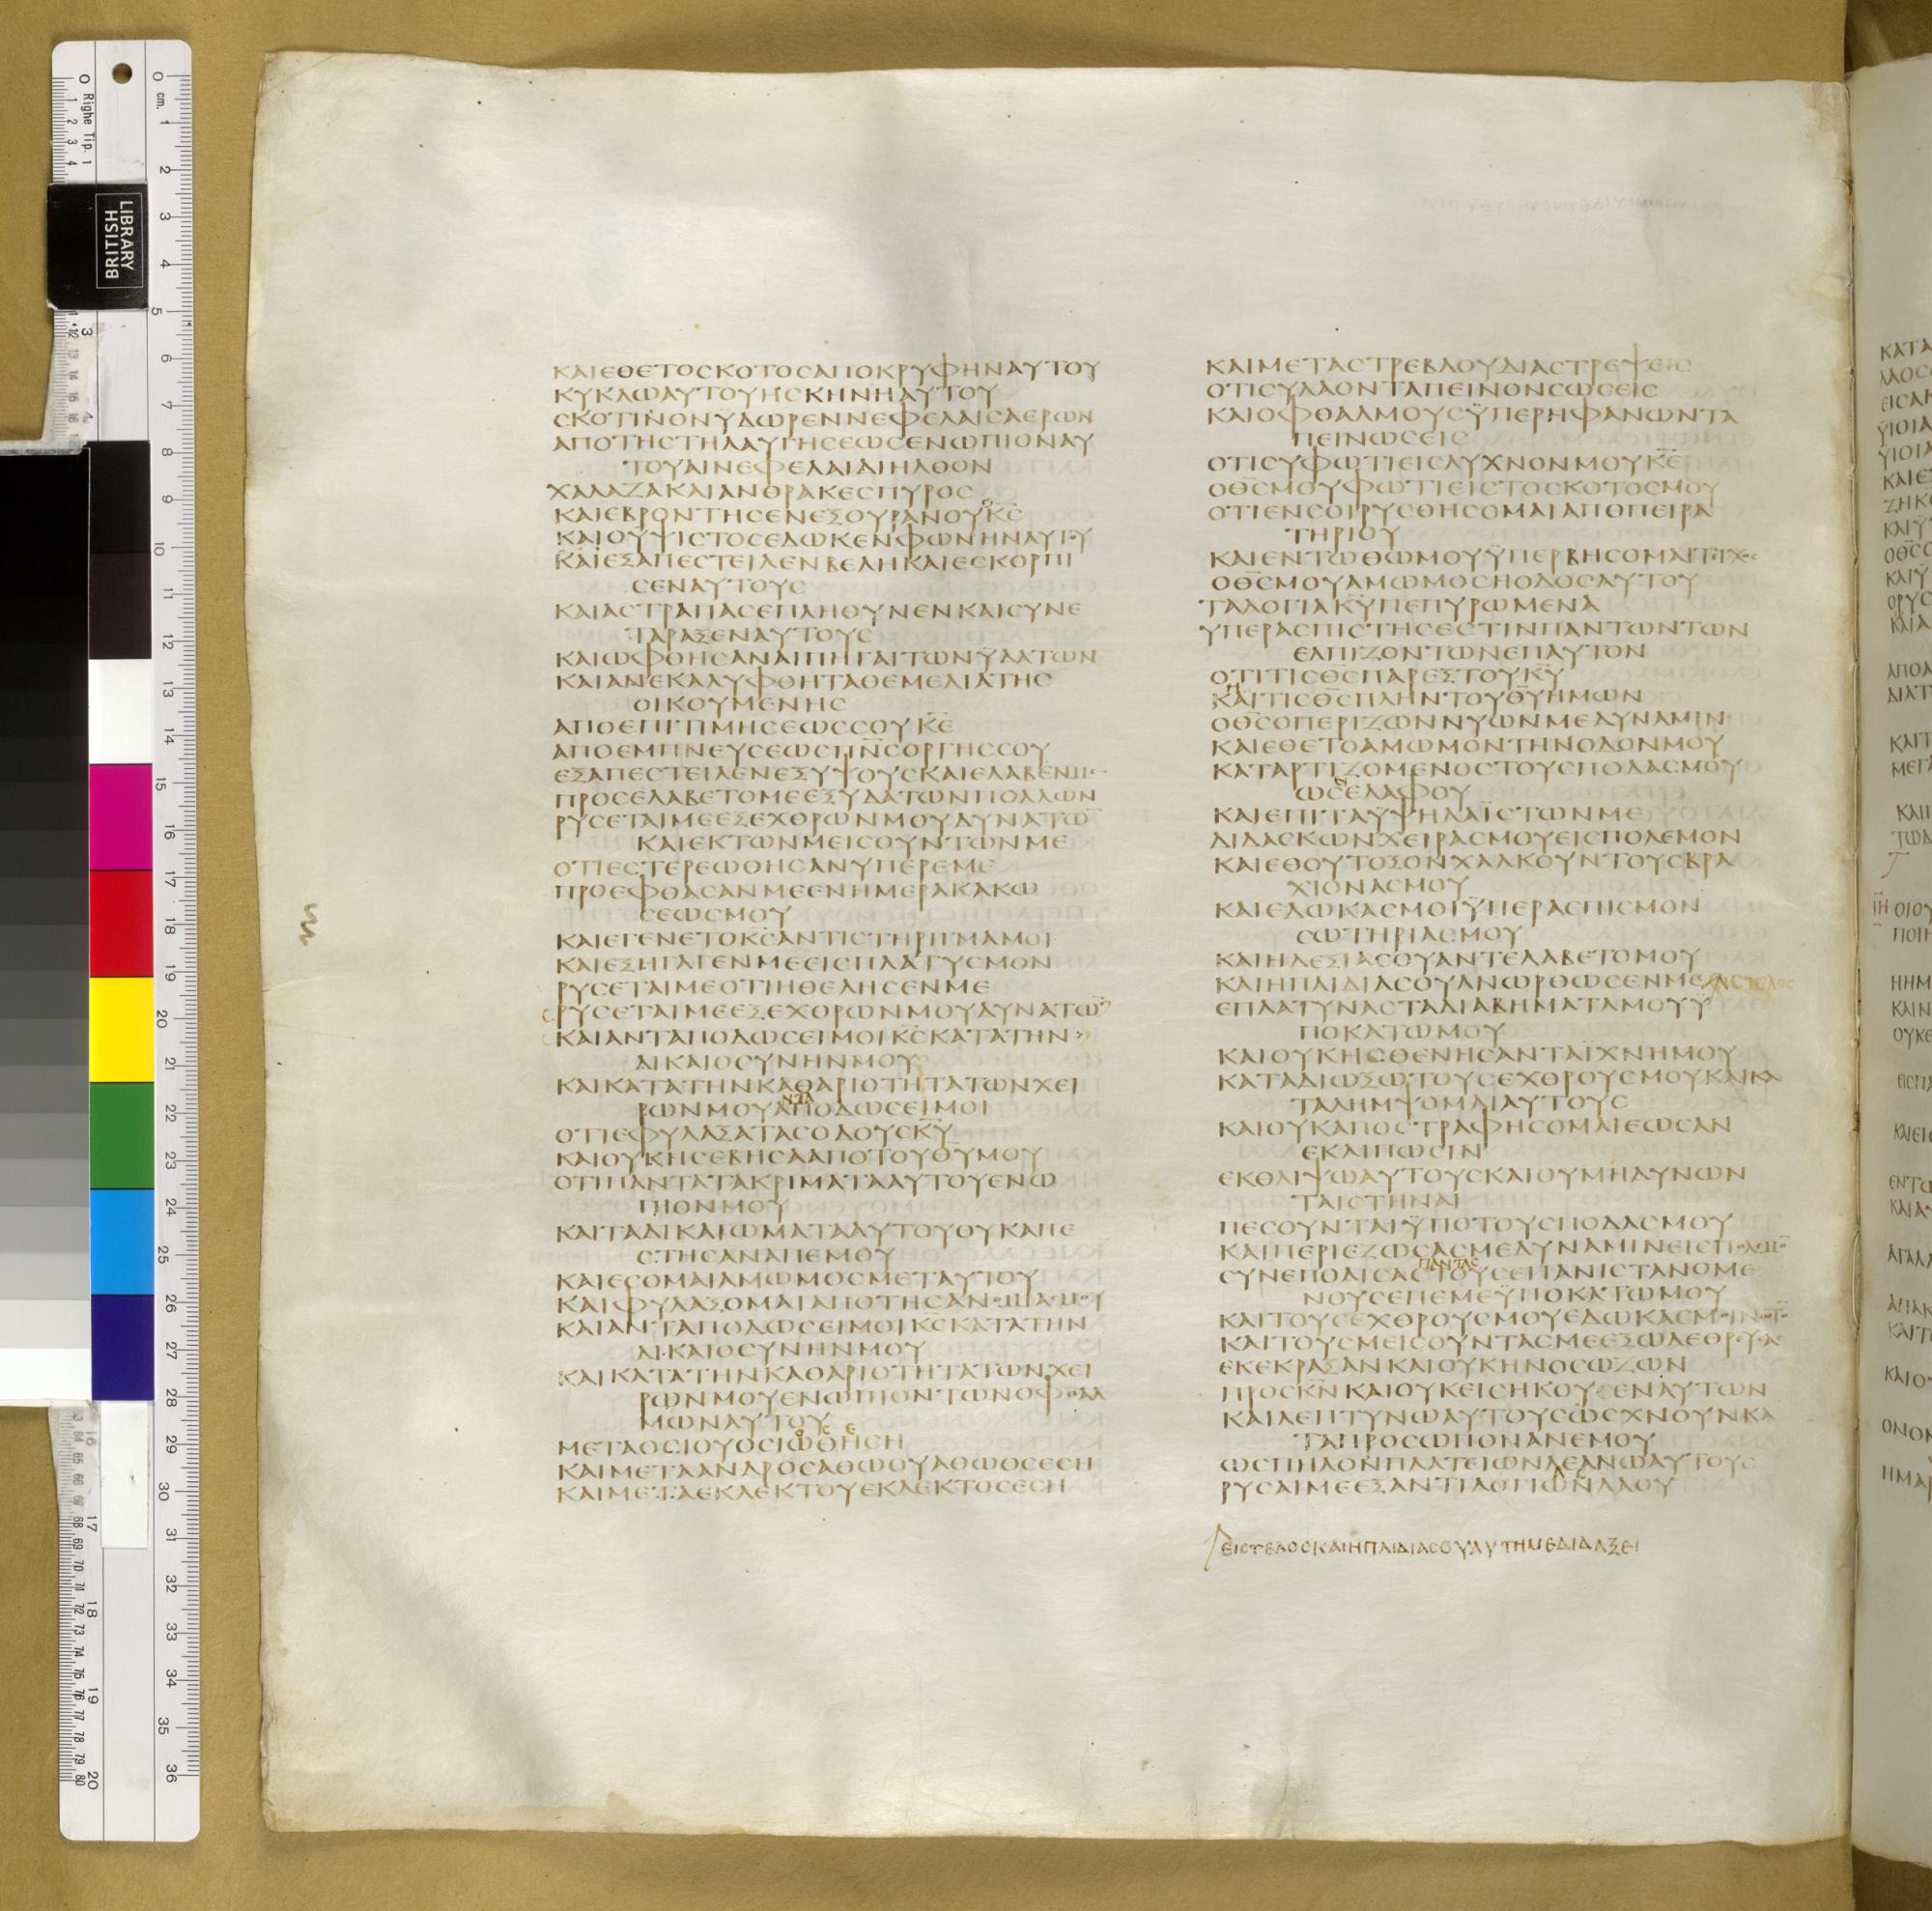 ΚΑΙΕΘΕΤΟϹΚΟΤΟϹΑΠΟΚΡΥΦΗΝΑΥΤΟΥ
ΚΥΚΛΩΑΥΤΟΥΗϹΚΗΝΗΑΥΤΟΥ
ϹΚΟΤΙΝΟΝΫΔΩΡΕΝΝΕΦΕΛΑΙϹΑΕΡΩΝ
ΑΠΟΤΗϹΤΗΛΑΥΓΗϹΕΩϹΕΝΩΠΙΟΝΑΥ
ΤΟΥΑΙΝΕΦΕΛΑΙΔΙΗΛΘΟΝ
ΧΑΛΑΖΑΚΑΙΑΝΘΡΑΚΕϹΠΥΡΟϹ
ΚΑΙΕΒΡΟΝΤΗϹΕΝΕΞΟΥΡΑΝΟΥΚ̅Ϲ̅
ΚΑΙΟΫΨΙϹΤΟϹΕΔΩΚΕΝΦΩΝΗΝΑΥΤΟΥ
ΚΑΙΕΞΑΠΕϹΤΕΙΛΕΝΒΕΛΗΚΑΙΕϹΚΟΡΠΙ
ϹΕΝΑΥΤΟΥϹ
ΚΑΙΑϹΤΡΑΠΑϹΕΠΛΗΘΥΝΕΝΚΑΙϹΥΝΕ
ΤΑΡΑΞΕΝΑΥΤΟΥϹ
ΚΑΙΩΦΘΗϹΑΝΑΙΠΗΓΑΙΤΩΝΫΔΑΤΩΝ
ΚΑΙΑΝΕΚΑΛΥΦΘΗΤΑΘΕΜΕΛΙΑΤΗϹ
ΟΙΚΟΥΜΕΝΗϹ
ΑΠΟΕΠΙΤΙΜΗϹΕΩϹϹΟΥΚ̅Ε̅
ΑΠΟΕΜΠΝΕΥϹΕΩϹΠ̅Ν̅Ϲ̅ΟΡΓΗϹϹΟΥ
ΕΞΑΠΕϹΤΕΙΛΕΝΕΞΥΨΟΥϹΚΑΙΕΛΑΒΕΝΜΕ
ΠΡΟϹΕΛΑΒΕΤΟΜΕΕΞΥΔΑΤΩΝΠΟΛΛΩΝ
ΡΥϹΕΤΑΙΜΕΕΞΕΧΘΡΩΝΜΟΥΔΥΝΑΤΩ̅
ΚΑΙΕΚΤΩΝΜΕΙϹΟΥΝΤΩΝΜΕ
ΟΤΙΕϹΤΕΡΕΩΘΗϹΑΝΥΠΕΡΕΜΕ
ΠΡΟΕΦΘΑϹΑΝΜΕΕΝΗΜΕΡΑΚΑΚΩ
ϹΕΩϹΜΟΥ
ΚΑΙΕΓΕΝΕΤΟΚ̅Ϲ̅ΑΝΤΙϹΤΗΡΙΓΜΑΜΟΙ
ΚΑΙΕΞΗΓΑΓΕΝΜΕΕΙϹΠΛΑΤΥϹΜΟΝ
ΡΥϹΕΤΑΙΜΕΟΤΙΗΘΕΛΗϹΕΝΜΕ
ΡΥϹΕΤΑΙΜΕΕΞΕΧΘΡΩΝΜΟΥΔΥΝΑΤΩ̅
ΚΑΙΑΝΤΑΠΟΔΩϹΕΙΜΟΙΚ̅Ϲ̅ΚΑΤΑΤΗΝ
ΔΙΚΑΙΟϹΥΝΗΝΜΟΥ
ΚΑΙΚΑΤΑΤΗΝΚΑΘΑΡΙΟΤΗΤΑΤΩΝΧΕΙ
ΝΤΑ
ΡΩΝΜΟΥΑΠΟΔΩϹΕΙΜΟΙ
ΟΤΙΕΦΥΛΑΞΑΤΑϹΟΔΟΥϹΚ̅Υ̅
ΚΑΙΟΥΚΗϹΕΒΗϹΑΑΠΟΤΟΥΘ̅Υ̅ΜΟΥ
ΟΤΙΠΑΝΤΑΤΑΚΡΙΜΑΤΑΑΥΤΟΥΕΝΩ
ΠΙΟΝΜΟΥ
ΚΑΙΤΑΔΙΚΑΙΩΜΑΤΑΑΥΤΟΥΟΥΚΑΠΕ
ϹΤΗϹΑΝΑΠΕΜΟΥ
ΚΑΙΕϹΟΜΑΙΑΜΩΜΟϹΜΕΤΑΥΤΟΥ
ΚΑΙΦΥΛΑΞΟΜΑΙΑΠΟΤΗϹΑΝΟΜΙΑϹΜΟΥ
ΚΑΙΑΝΤΑΠΟΔΩϹΕΙΜΟΙΚ̅Ϲ̅ΚΑΤΑΤΗΝ
ΔΙΚΑΙΟϹΥΝΗΝΜΟΥ
ΚΑΙΚΑΤΑΤΗΝΚΑΘΑΡΙΟΤΗΤΑΤΩΝΧΕΙ
ΡΩΝΜΟΥΕΝΩΠΙΟΝΤΩΝΟΦΘΑΛ
ΜΩΝΑΥΤΟΥ
ΜΕΤΑΟϹΙΟΥΟϹΙΩΘΗϹΗ
ΚΑΙΜΕΤΑΑΝΔΡΟϹΑΘΩΟΥΑΘΩΟϹΕϹΗ
ΚΑΙΜΕΤΑΕΚΛΕΚΤΟΥΕΚΛΕΚΤΟϹΕϹΗ
ΚΑΙΜΕΤΑϹΤΡΕΒΛΟΥΔΙΑϹΤΡΕΨΕΙϹ
ΟΤΙϹΥΛΑΟΝΤΑΠΕΙΝΟΝϹΩϹΕΙϹ
ΚΑΙΟΦΘΑΛΜΟΥϹΫΠΕΡΗΦΑΝΩΝΤΑ
ΠΕΙΝΩϹΕΙϹ
ΟΤΙϹΥΦΩΤΙΕΙϹΛΥΧΝΟΝΜΟΥΚ̅Ε̅
ΟΘ̅Ϲ̅ΜΟΥΦΩΤΙΕΙϹΤΟϹΚΟΤΟϹΜΟΥ
ΟΤΙΕΝϹΟΙΡΥϹΘΗϹΟΜΑΙΑΠΟΠΕΙΡΑ
ΤΗΡΙΟΥ
ΚΑΙΕΝΤΩΘΩΜΟΥΫΠΕΡΒΗϹΟΜΑΙΤΙΧΟϹ
ΟΘ̅Ϲ̅ΜΟΥΑΜΩΜΟϹΗΟΔΟϹΑΥΤΟΥ
ΤΑΛΟΓΙΑΚ̅Υ̅ΠΕΠΥΡΩΜΕΝΑ
ΥΠΕΡΑϹΠΙϹΤΗϹΕϹΤΙΝΠΑΝΤΩΝΤΩΝ
ΕΛΠΙΖΟΝΤΩΝΕΠΑΥΤΟΝ
ΟΤΙΤΙϹΘ̅Ϲ̅ΠΑΡΕΞΤΟΥΚ̅Υ̅
ΚΑΙΤΙϹΘ̅Ϲ̅ΠΛΗΝΤΟΥΘ̅Υ̅ΗΜΩΝ
ΟΘ̅Ϲ̅ΟΠΕΡΙΖΩΝΝΥΩΝΜΕΔΥΝΑΜΙΝ
ΚΑΙΕΘΕΤΟΑΜΩΜΟΝΤΗΝΟΔΟΝΜΟΥ
ΚΑΤΑΡΤΙΖΟΜΕΝΟϹΤΟΥϹΠΟΔΑϹΜΟΥ
ΩϹΕΛΑΦΟΥ
ΚΑΙΕΠΙΤΑΫΨΗΛΑΪϹΤΩΝΜΕ
ΔΙΔΑϹΚΩΝΧΕΙΡΑϹΜΟΥΕΙϹΠΟΛΕΜΟΝ
ΚΑΙΕΘΟΥΤΟΞΟΝΧΑΛΚΟΥΝΤΟΥϹΒΡΑ
ΧΙΟΝΑϹΜΟΥ
ΚΑΙΕΔΩΚΑϹΜΟΙΫΠΕΡΑϹΠΙϹΜΟΝ
ϹΩΤΗΡΙΑϹΜΟΥ
ΚΑΙΗΔΕΞΙΑϹΟΥΑΝΤΕΛΑΒΕΤΟΜΟΥ
ΚΑΙΗΠΑΙΔΙΑϹΟΥΑΝΩΡΘΩϹΕΝΜΕ
ΕΠΛΑΤΥΝΑϹΤΑΔΙΑΒΗΜΑΤΑΜΟΥΫ
ΠΟΚΑΤΩΜΟΥ
ΚΑΙΟΥΚΗϹΘΕΝΗϹΑΝΤΑΪΧΝΗΜΟΥ
ΚΑΤΑΔΙΩΞΩΤΟΥϹΕΧΘΡΟΥϹΜΟΥΚΑΙΚΑ
ΤΑΛΗΜΨΟΜΑΙΑΥΤΟΥϹ
ΚΑΙΟΥΚΑΠΟϹΤΡΑΦΗϹΟΜΑΙΕΩϹΑΝ
ΕΚΛΙΠΩϹΙΝ
ΕΚΘΛΙΨΩΑΥΤΟΥϹΚΑΙΟΥΜΗΔΥΝΩΝ
ΤΑΙϹΤΗΝΑΙ
ΠΕϹΟΥΝΤΑΙΫΠΟΤΟΥϹΠΟΔΑϹΜΟΥ
ΚΑΙΠΕΡΙΕΖΩϹΑϹΜΕΔΥΝΑΜΙΝΕΙϹΠΟΛΕΜΟ̅
ΠΑΝΤΑϹ
ϹΥΝΕΠΟΔΙϹΑϹΤΟΥϹΕΠΑΝΙϹΤΑΝΟΜΕ
ΝΟΥϹΕΠΕΜΕΫΠΟΚΑΤΩΜΟΥ
ΚΑΙΤΟΥϹΕΧΘΡΟΥϹΜΟΥΕΔΩΚΑϹΜΟΙΝΩΤΟ̅
ΚΑΙΤΟΥϹΜΕΙϹΟΥΝΤΑϹΜΕΕΞΩΛΕΘΡΕΥϹΑϹ
ΕΚΕΚΡΑΞΑΝΚΑΙΟΥΚΗΝΟϹΩΖΩΝ
ΠΡΟϹΚ̅Ν̅ΚΑΙΟΥΚΕΙϹΗΚΟΥϹΕΝΑΥΤΩΝ
ΚΑΙΛΕΠΤΥΝΩΑΥΤΟΥϹΩϹΧΝΟΥΝΚΑ
ΤΑΠΡΟϹΩΠΟΝΑΝΕΜΟΥ
ΩϹΠΗΛΟΝΠΛΑΤΕΙΩΝΛΕΑΝΩΑΥΤΟΥϹ
ΡΥϹΑΙΜΕΕΞΑΝΤΙΛΟΓΙΩΝΛΑΟΥ
ΕΙϹΤΕΛΟϹΚΑΙΗΠΑΙΔΙΑϹΟΥΑΥΤΗΜΕΔΙΔΑΞΕΙ
BRITISH
LIBRARY
Righe Tip. 1
cm.